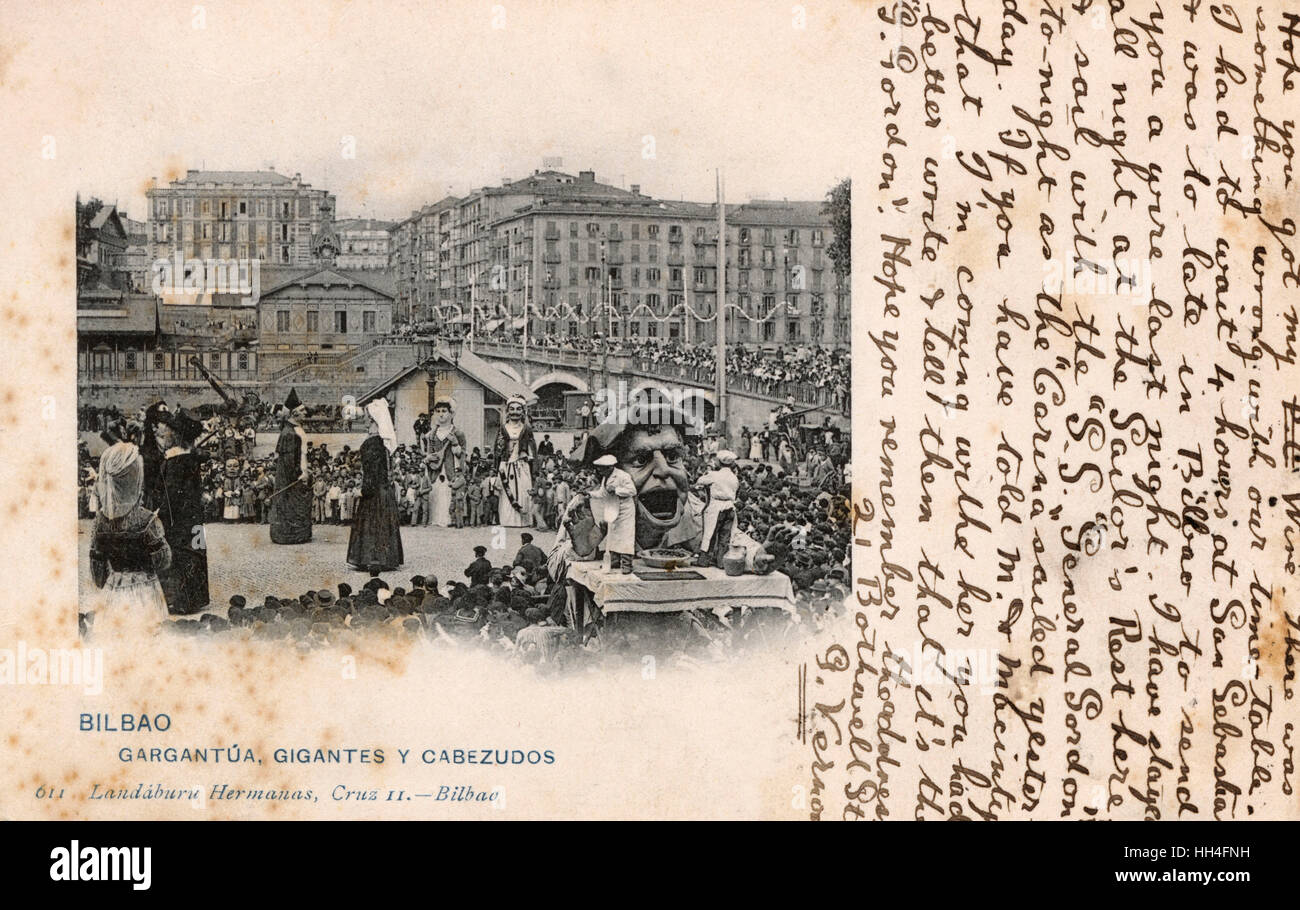 Hope you got my Wire. There was
something wrong with our time table.
I had to wait 4 hours at San Sebastian
& was to late in Bilbao to send
you a wire last night. I have stayed
all night at the Sailor's Rest here
& sail with the "S.S. General Gordon"
to-night as the "Carina" sailed yester-
day. If you have told M. & Macinty
that I'm coming withe her you had
better write & tell them that it's the
"G. Gordon". Hope you remember the address
21 Bothwell St
G. Vernon
BILBAO
GARGANTÚA, GIGANTES Y CABEZUDOS
611 Landáburu Hermanas, Cruz 11.—Bilbao
alamy
alamy
Image ID: HH4FNH
www.alamy.com